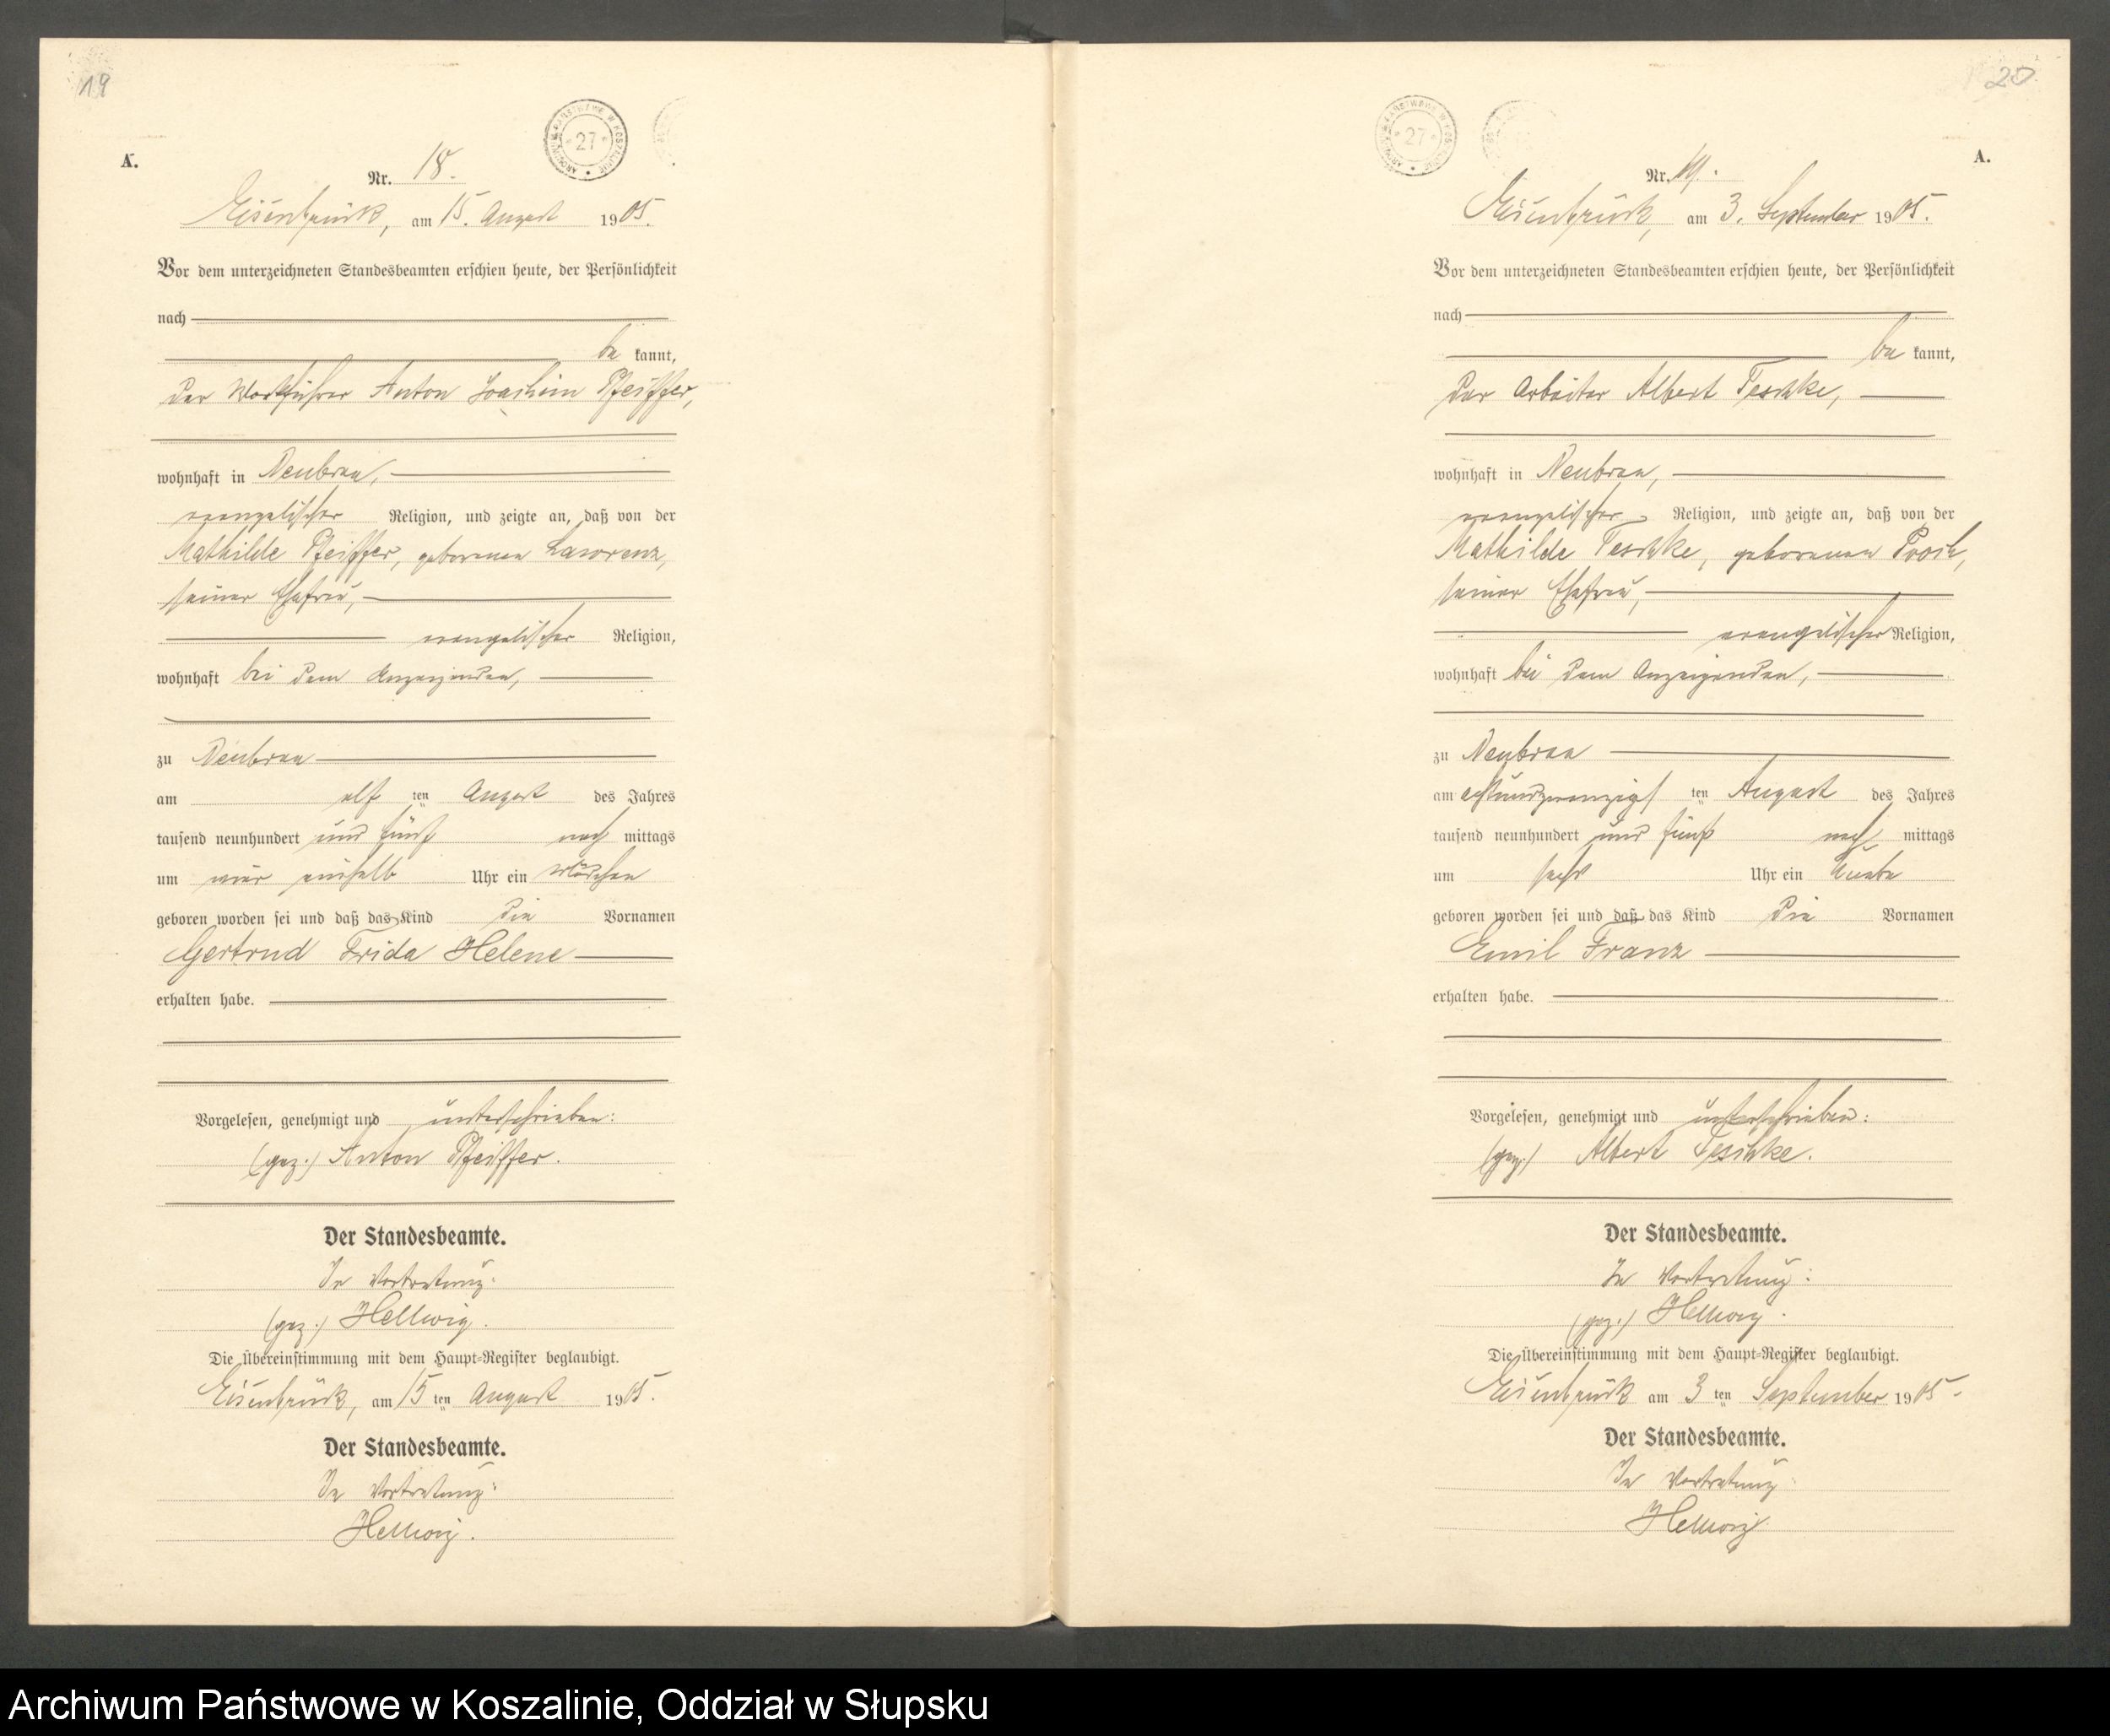 19
A.
ARCHIWUM PAŃSTWOWE W KOSZALINIE
27
Nr. 18.
Eisenbrück, am 15. August 1905.
Vor dem unterzeichneten Standesbeamten erschien heute, der Persönlichkeit
nach
be kannt,
der Werkführer Anton Joachim Pfeiffer,
wohnhaft in Neubrau,
evangelischer Religion, und zeigte an, daß von der
Mathilde Pfeiffer, geborenen Laworenz,
seiner Ehefrau,
evangelischer Religion,
wohnhaft bei dem Anzeigenden,
zu Neubrau
am elf ten August des Jahres
tausend neunhundert und fünf nach mittags
um einhalb Uhr ein Mädchen
geboren worden sei und daß das Kind die Vornamen
Gertrud Frida Helene
erhalten habe.
Vorgelesen, genehmigt und unterschrieben:
(gez.) Anton Pfeiffer.
Der Standesbeamte.
In Vertretung:
(gez.) Hellwig.
Die Übereinstimmung mit dem Haupt-Register beglaubigt.
Eisenbrück, am 15 ten August 1905.
Der Standesbeamte.
In Vertretung:
Hellwig.
20
A.
ARCHIWUM PAŃSTWOWE W KOSZALINIE
27
Nr. 19.
Eisenbrück, am 3. September 1905.
Vor dem unterzeichneten Standesbeamten erschien heute, der Persönlichkeit
nach
be kannt,
der Arbeiter Albert Teschke,
wohnhaft in Neubrau,
evangelischer Religion, und zeigte an, daß von der
Mathilde Teschke, geborenen
seiner Ehefrau,
evangelischer Religion,
wohnhaft bei dem Anzeigenden,
zu Neubrau
am achtundzwanzigs ten August des Jahres
tausend neunhundert und fünf nach mittags
um sechs Uhr ein Knabe
geboren worden sei und daß das Kind die Vornamen
Emil Franz
erhalten habe.
Vorgelesen, genehmigt und unterschrieben:
(gez.) Albert Teschke.
Der Standesbeamte.
In Vertretung:
(gez.) Hellwig.
Die Übereinstimmung mit dem Haupt-Register beglaubigt.
Eisenbrück am 3 ten September 1905.
Der Standesbeamte.
In Vertretung:
Hellwig
Archiwum Państwowe w Koszalinie, Oddział w Słupsku